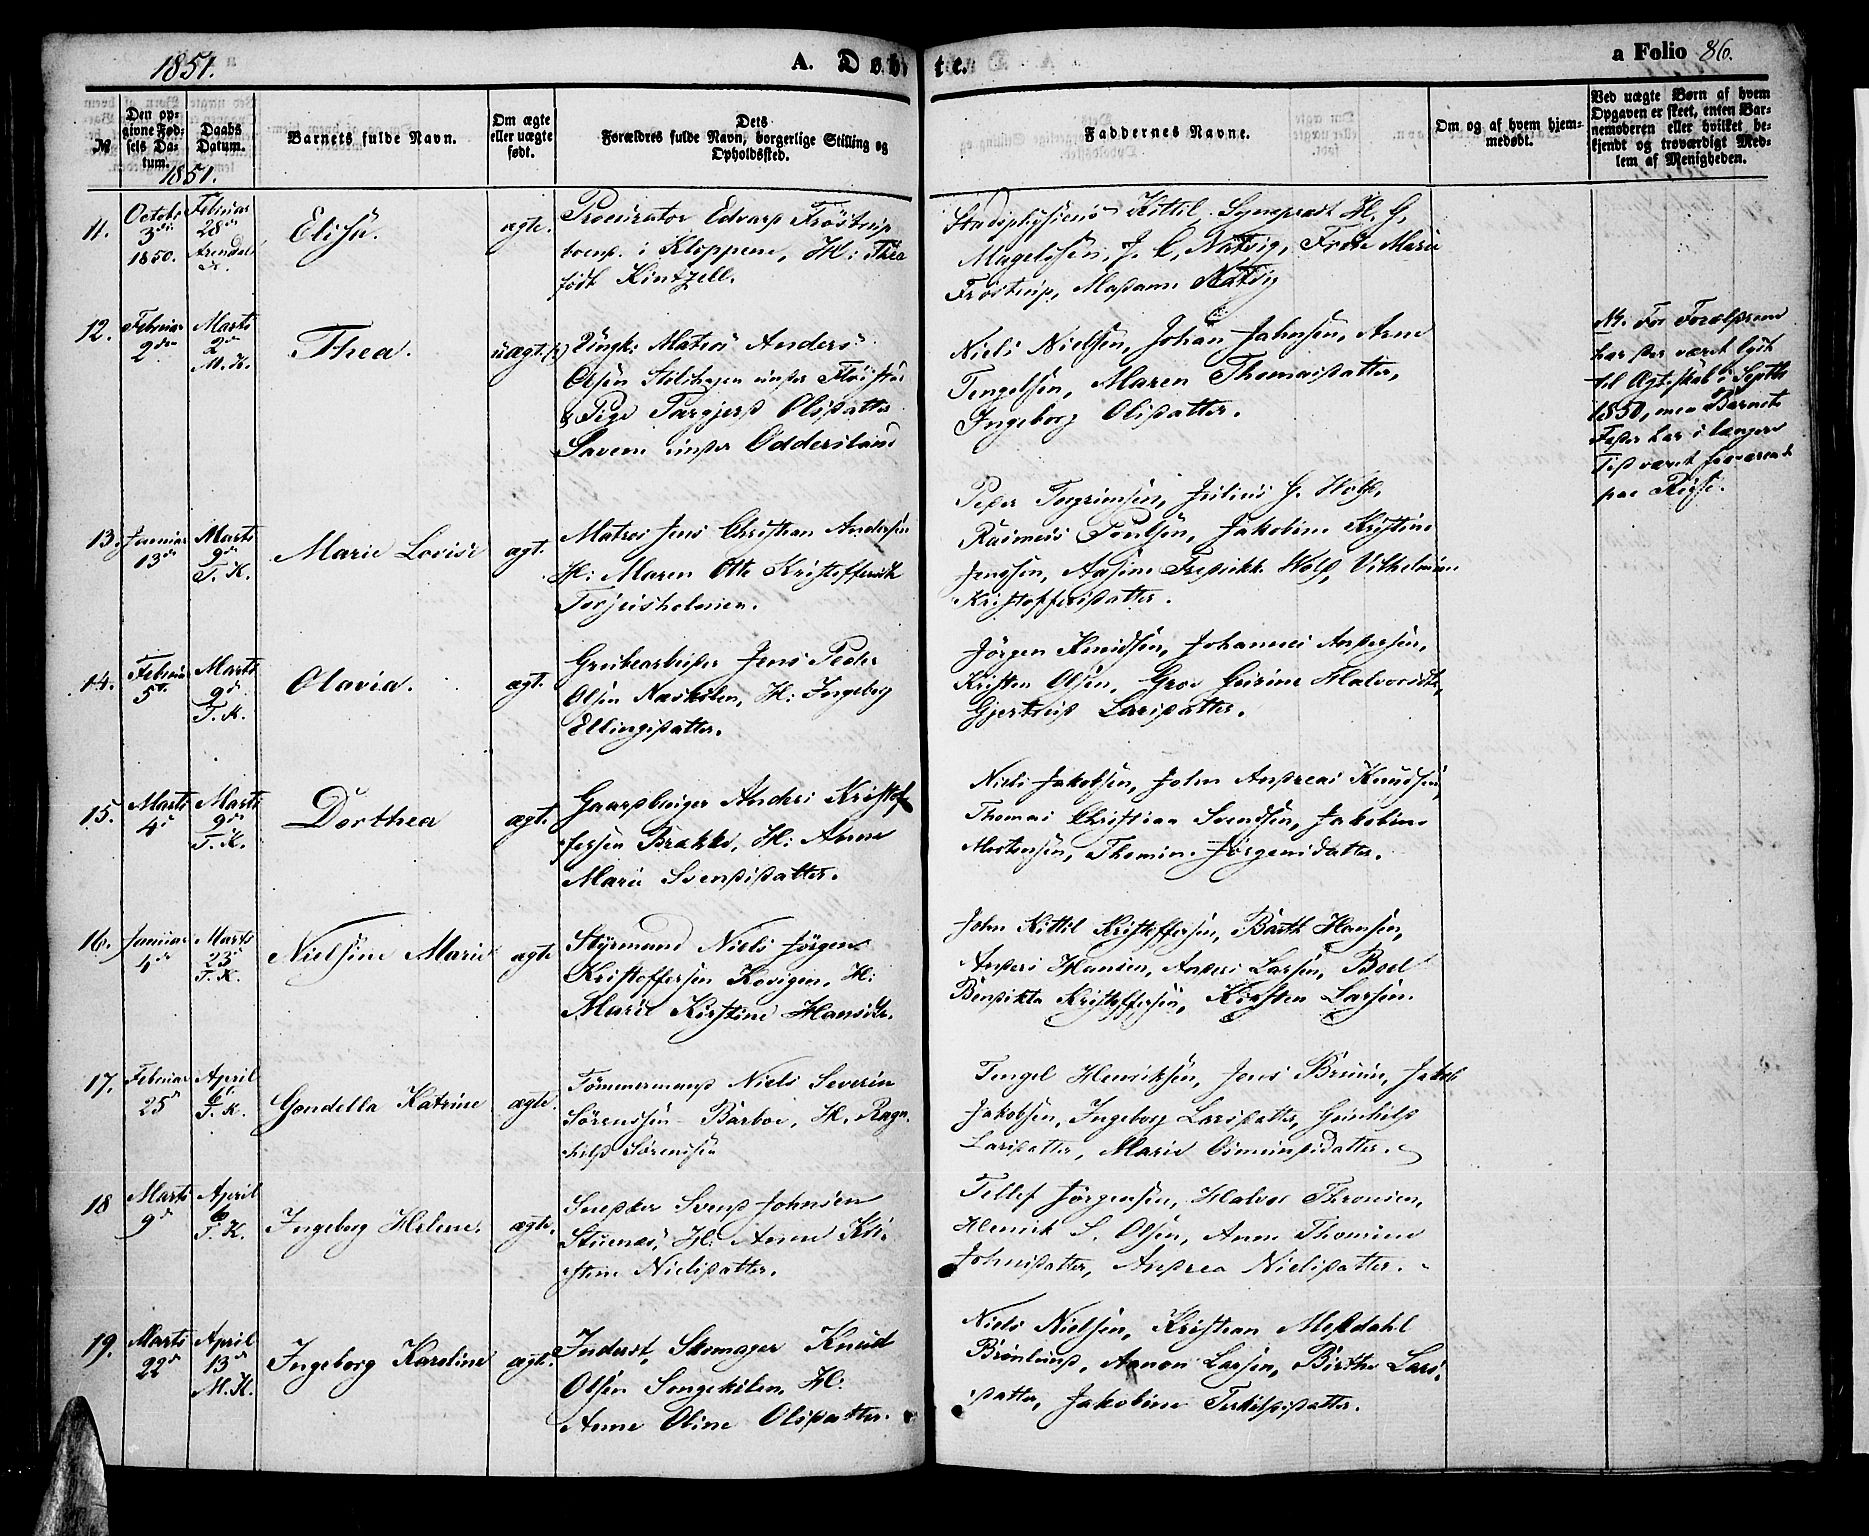 1851.
A. Døbte.
a Folio 86.
№
Den opgivne Fødsels Datum.
Daabs Datum.
Barnets fulde Navn.
Om ægte eller uægte født.
Dets Forældres fulde Navn, borgerlige Stilling og Opholdssted.
Faddernes Navne.
Om og af hvem hjemmedøbt.
Ved uægte Børn af hvem Opgaven er skeet, enten Barnemoderen eller hvilket bekjendt og troværdigt Medlem af Menigheden.
1851.
11.
Octobr
3die
1850.
Februar
28de
Arendals
K.
Elisa.
ægte.
Procurator Edvard Frøstrup
boend. i Kloppene, H: Thea
født Kintzell.
Stadsphysicus Kittil. Sognepræst H. G.
Magelssen, J. C. Natvig, Frue Marie
Frøstrup, Madame Natvig
12.
Februar
2den
Marts
2d
M.K.
Thea.
uægt.
Ungk: Matros Anders
Olsen Stølshagen under Fløistad
& Pige Torgjerd Olsdatter
Saven under Oddersland
Niels Nielsen, Johan Jahnsen, Arne
Tengelsen, Maren Thomasdatter,
Ingeborg Olsdatter.
For Forældrene
har der været lyst
til Ægteskab i Septbr
1850, men Barnets
Fader har i længere
Tid været fraværende
paa Reise.
13.
Januar
13de
Marts
9d
T.K.
Marie Lovise
ægt.
Matros Jens Christian Andersen
H: Maren Otte Kristoffersdtr
Torjeisholmen.
Peder Torgrimsen, Julius J. Wold,
Rasmus Poulsen, Jakobine Kristine
Jenssen, Aasine Fredrikke Wold, Vilhelmine
Kristoffersdatter.
14.
Februar
5t.
Marts
9d
T.K.
Olavia.
ægt.
Grubearbeider Jens Peder
Olsen Naskilen, H: Ingeborg
Ellingsdatter.
Jørgen Knudsen, Johannes Andersen,
Kristen Olsen, Groe Gurine Halvorsdtr,
Gjertrud Larsdatter.
15.
Marts
4d
Marts
9d
T.K.
Dorthea
ægt.
Gaardbruger Anders Kristof
fersen Brække, H: Anne
Marie Svendsdatter.
Niels Jakobsen, John Andreas Knudsen,
Thomas Christian Svendsen, Jakobine
Mortensen, Thomine Jørgensdatter.
16.
Januar
4de
Marts
23d
T.K.
Nielsine Marie
ægte
Styrmand Niels Jørgen
Kristoffersen Kovigen, H:
Marie Kirstine Hansdtr.
John Kittil Kristoffersen, Barth Hansen,
Anders Hansen, Anders Larsen, Boel
Bendikta Kristoffersen, Kirsten Larsen.
17.
Februar
25d
April
6t.
T.K.
Gondella Katrine
ægte.
Tømmermand Niels Severin
Sørenssen Barboe, H: Ragn
hild Sørenssen
Tengel Henriksen, Jens Bruun, Jakob
Jakobsen, Ingeborg Larsdatter, Gunhild
Larsdatter, Marie Osmundsdatter.
18
Marts
9d
April
6
T.K.
Ingeborg Helene.
ægte.
Snedker Svend Johnsen
Stuenæs, H: Anne Kri-
stine Nielsdatter.
Tellef Jørgensen, Halvor Thronsen,
Henrik S. Olsen, Anne Thomine
Johnsdatter, Andrea Nielsdatter.
19.
Marts
22d
April
13d
M.K.
Ingeborg Karoline
ægt.
Inderst, Skomager Knud
Olsen Songekilen, H:
Anne Oline Olsdatter.
Niels Nielsen, Kristian Mekdahl
Brønlund, Aanon Larsen, Birthe Lars-
datter, Jakobine Terkildsdatter.